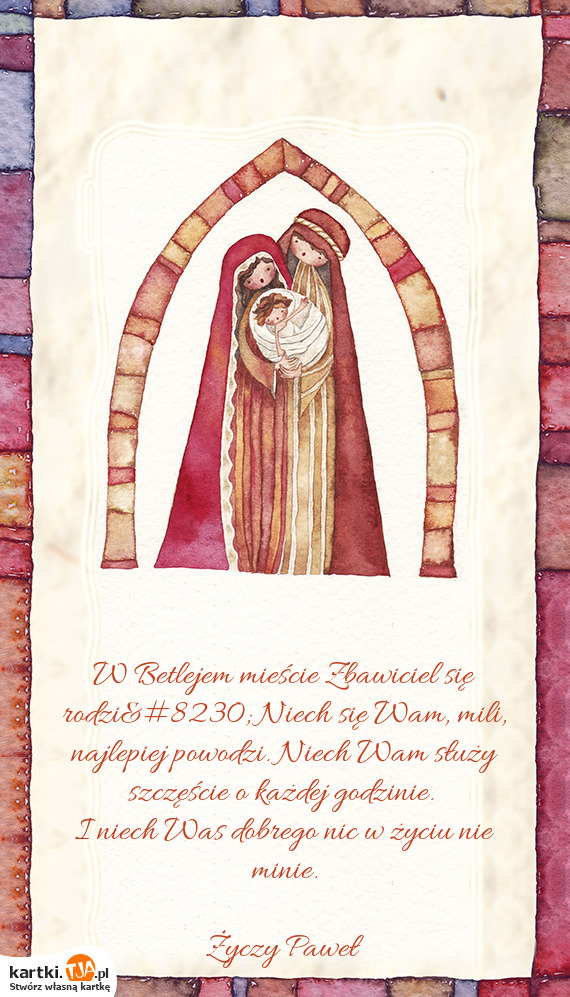 W Betlejem mieście Zbawiciel się
rodzi&#8230; Niech się Wam, mili,
najlepiej powodzi. Niech Wam służy
szczęście o każdej godzinie.
I niech Was dobrego nic w życiu nie
minie.
Życzy Paweł
kartki.TJA.pl
Stwórz własną kartkę